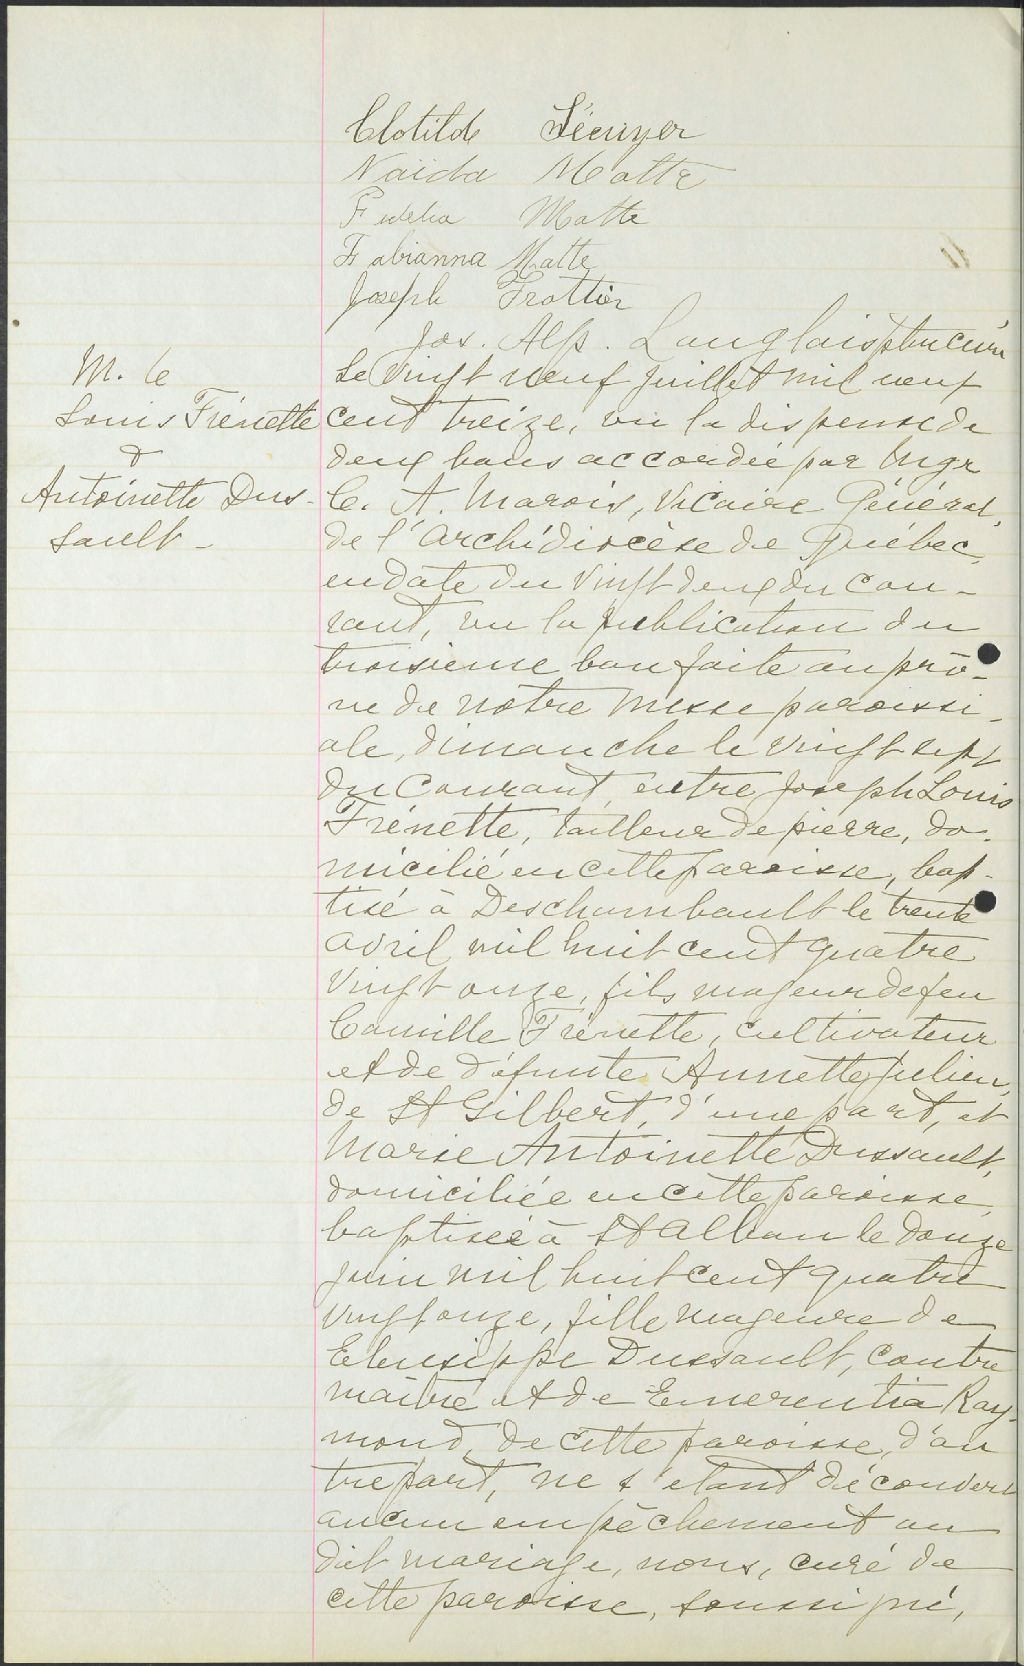 Clotilde Lécuyer
Naïda Matte
Fidélia Matte
Fabianna Matte
Joseph Trottier
Jos. Alp. Langlois ptre curé
M. 6
Louis Frénette
&
Antoinette Dus-
sault -
Le vingt neuf juillet mil neuf
cent treize, vu la dispense de
deux bans accordée par Mgr
C. A. Marois, Vicaire Général,
de l'archidiocèse de Québec,
en date du vingt deux du cou-
rant, vu la publication du
troisieme ban faite au prô-
ne de notre messe paroissi-
ale, dimanche le vingt sept
du Courant, entre Joseph Louis
Frénette, tailleur de pierre, do-
micilié en cette paroisse, bap-
tisé à Deschambault le trente
avril mil huit cent quatre
vingt onze, fils majeur de feu
Camille Frénette, cultivateur
et de défunte Annette Julien,
de St Gilbert, d'une part, et
Marie Antoinette Dussault,
domiciliée en cette paroisse,
baptisée à St Alban le douze
juin mil huit cent quatre
vingt onze, fille majeure de
Eleusippe Dussault, contre
maître et de Emerentia Ray-
mond, de cette paroisse, d'au
tre part, ne s'étant découvert
aucun empêchement au
dit mariage, nous, curé de
cette paroisse, soussigné,